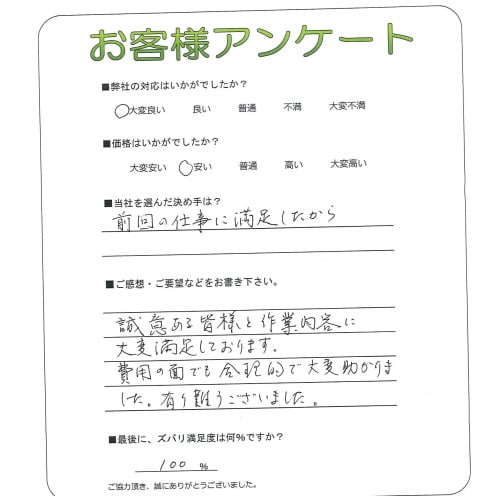 お客様アンケート
■弊社の対応はいかがでしたか？
大変良い 良い 普通 不満 大変不満
■価格はいかがでしたか？
大変安い 安い 普通 高い 大変高い
■当社を選んだ決め手は？
前回の仕事に満足したから
■ご感想・ご要望などをお書き下さい。
誠意ある皆様と作業内容に
大変満足しております。
費用の面でも合理的で大変助かりま
した。有り難うございました。
■最後に、ズバリ満足度は何%ですか？
100 %
ご協力頂き、誠にありがとうございました。